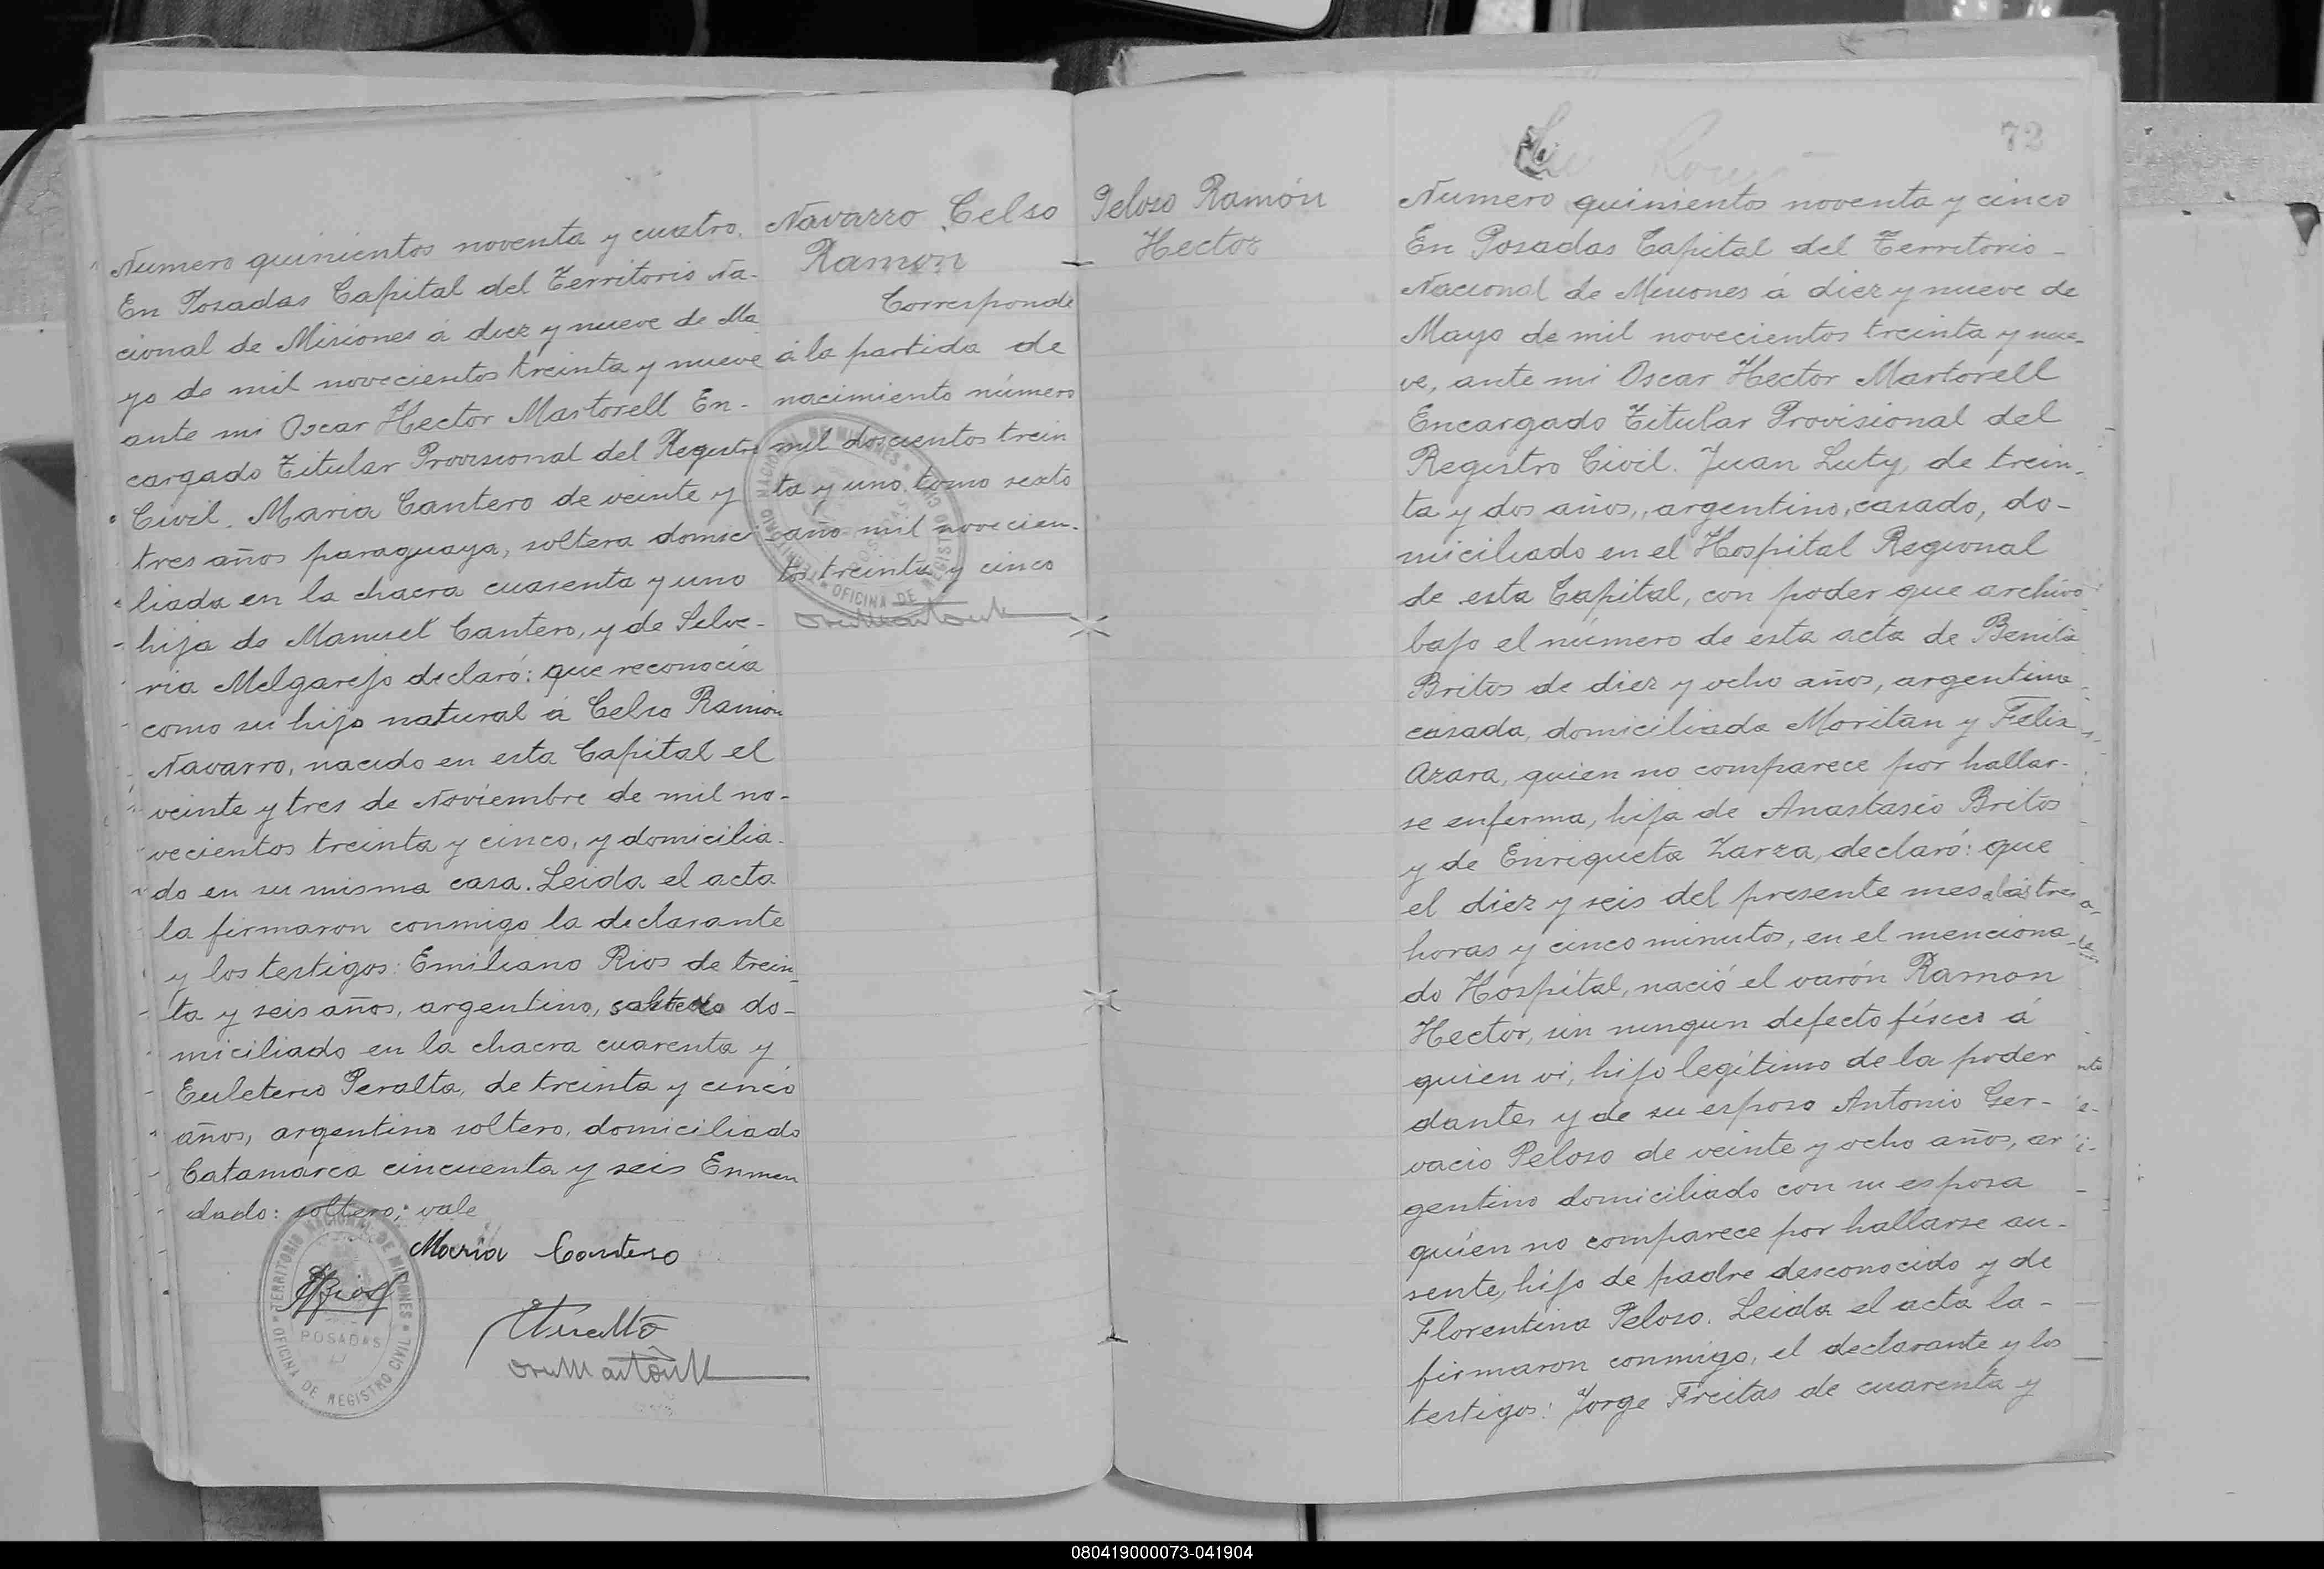 Numero quinientos noventa y cuatro.
En Posadas Capital del Territorio Na-
cional de Misiones á diez y nueve de Ma
yo de mil novecientos treinta y nueve
ante mi Oscar Hector Martorell En-
cargado Titular Provisional del Registro
Civil. Maria Cantero de veinte y
tres años paraguaya, soltera domici
liada en la chacra cuarenta y uno
hija de Manuel Cantero, y de Selve-
ria Melgarejo declaró: que reconocía
como su hijo natural á Celso Ramón
Navarro, nacido en esta Capital el
veinte y tres de Noviembre de mil no-
vecientos treinta y cinco, y domicilia-
do en su misma casa. Leida el acta
la firmaron conmigo la declarante
y los testigos: Emiliano Rios de trein
ta y seis años, argentino, soltero do-
miciliado en la chacra cuarenta y
Euleterio Peralta, de treinta y cinco
años, argentino soltero, domiciliado
Catamarca cincuenta y seis Enmen
dado: soltero; vale
Maria Cantero
TERRITORIO NACIONAL DE MISIONES
POSADAS
OFICINA DE REGISTRO CIVIL
Navarro Celso
Ramon
Corresponde
á la partida de
nacimiento número
mil doscientos trein
ta y uno tomo sexto
año mil novecien-
tos treinta y cinco
TERRITORIO NACIONAL DE MISIONES
POSADAS
OFICINA DE REGISTRO CIVIL
Peloso Ramón
Hector
72
Numero quinientos noventa y cinco
En Posadas Capital del Territorio -
Nacional de Misiones á diez y nueve de
Mayo de mil novecientos treinta y nue-
ve, ante mi Oscar Hector Martorell
Encargado Titular Provisional del
Registro Civil. Juan Luty, de trein-
ta y dos años, argentino, casado, do-
miciliado en el Hospital Regional
de esta Capital, con poder que archivo
bajo el número de esta acta de Benita
Britos de diez y ocho años, argentina
casada, domiciliada Moritan y Felix
Azara, quien no comparece por hallar-
se enferma, hija de Anastasio Britos
y de Enriqueta Zarza, declaró: que
el diez y seis del presente mes a las tres
horas y cinco minutos, en el menciona
do Hospital, nació el varón Ramon
Hector, sin ningun defecto físico á
quien vi, hijo legítimo de la poder
dante, y de su esposo Antonio Ger-
vacio Peloso de veinte y ocho años, ar
gentino domiciliado con su esposa
quien no comparece por hallarse au-
sente, hijo de padre desconocido y de
Florentina Peloso. Leida el acta la -
firmaron conmigo, el declarante y los
testigos: Jorge Freitas de cuarenta y
080419000073-041904